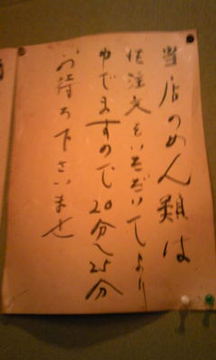 当店のめん類は
御注文をいただいてより
ゆでますので20分~25分
お待ち下さいませ